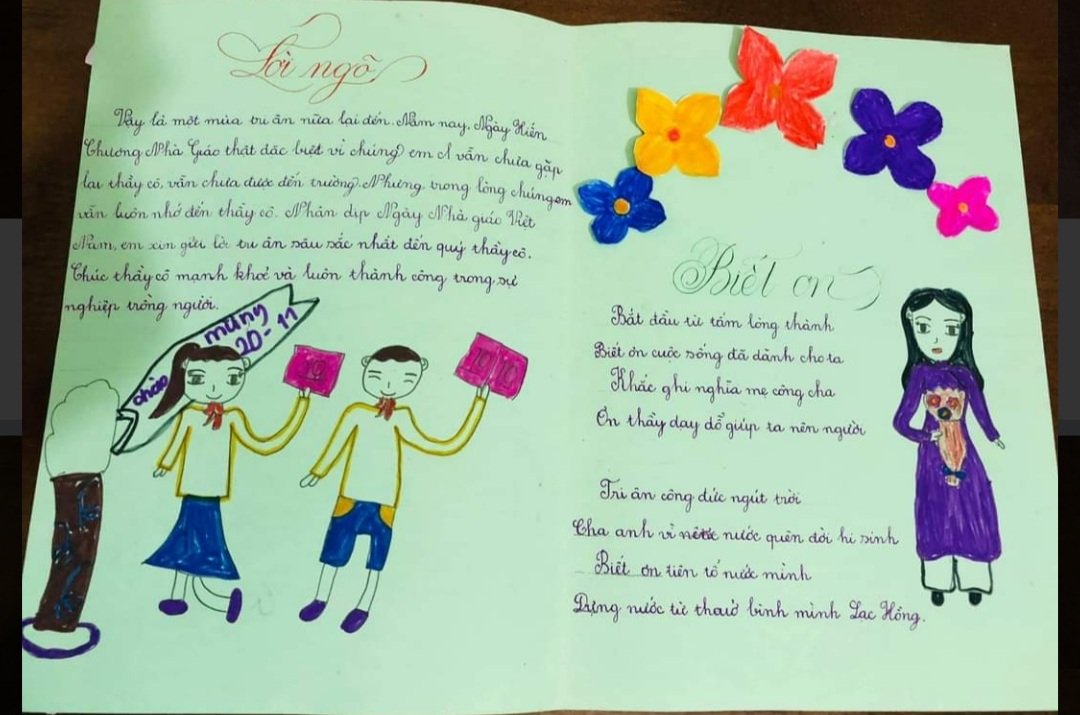 Lời ngõ
Vậy là một mùa tri ân nữa lại đến. Năm nay, Ngày Hiến
Chương Nhà Giáo thật đặc biệt vì chúng em vẫn chưa gặp
lại thầy cô, vẫn chưa được đến trường. Nhưng trong lòng chúng em
vẫn luôn nhớ đến thầy cô. Nhân dịp Ngày Nhà giáo Việt
Nam, em xin gửi lời tri ân sâu sắc nhất đến quý thầy cô.
Chúc thầy cô mạnh khoẻ và luôn thành công trong sự
nghiệp trồng người.
chào mừng
20-11
10
10
10
Biết ơn
Bắt đầu từ tấm lòng thành
Biết ơn cuộc sống đã dành cho ta
Khắc ghi nghĩa mẹ công cha
Ơn thầy dạy dỗ giúp ta nên người
Tri ân công đức ngút trời
Cha anh vì nước quên đời hi sinh
Biết ơn tiên tổ nước mình
Dựng nước từ thuở bình minh Lạc Hồng.